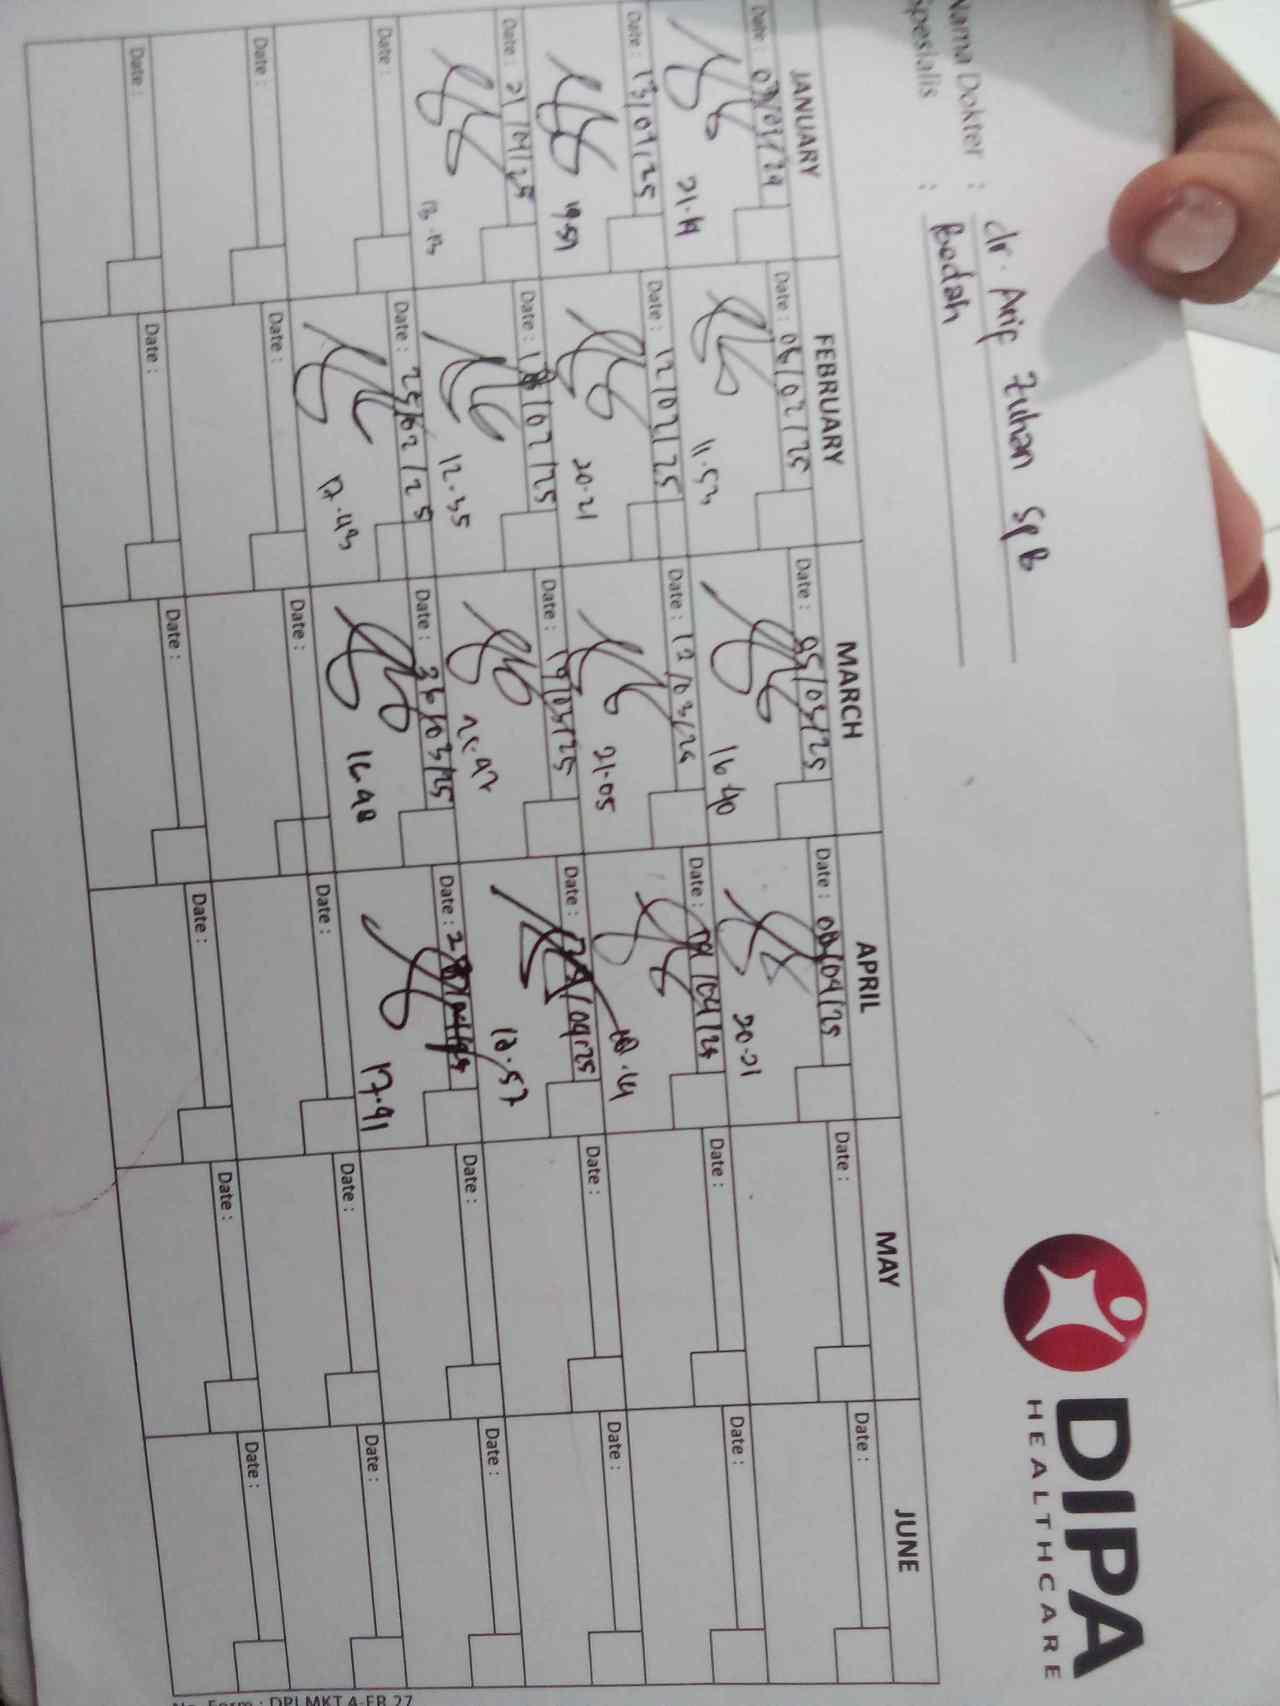 DIPA
HEALTHCARE
Nama Dokter : dr. Arip Zuhan SpB
Spesialis : Bedah
JANUARY FEBRUARY MARCH APRIL MAY JUNE
Date : Date : 05/02/25 Date : 05/03/25 Date : 08/04/25 Date : Date :
21.19 11.53 16.40 20.21
Date : 13/01/25 Date : 12/02/25 Date : 12/03/25 Date : Date : Date :
19.59 20.21 21.05
Date : 21/01/25 Date : 18/02/25 Date : 19/03/25 Date : Date : Date :
13.13 12.35 18.57
Date : Date : 25/02/25 Date : 26/03/25 Date : Date : Date :
17.43 16.48 17.41
Date : Date : Date : Date : Date : Date :
Date : Date : Date : Date : Date : Date :
No. Form : DPI.MKT.4-FR.27